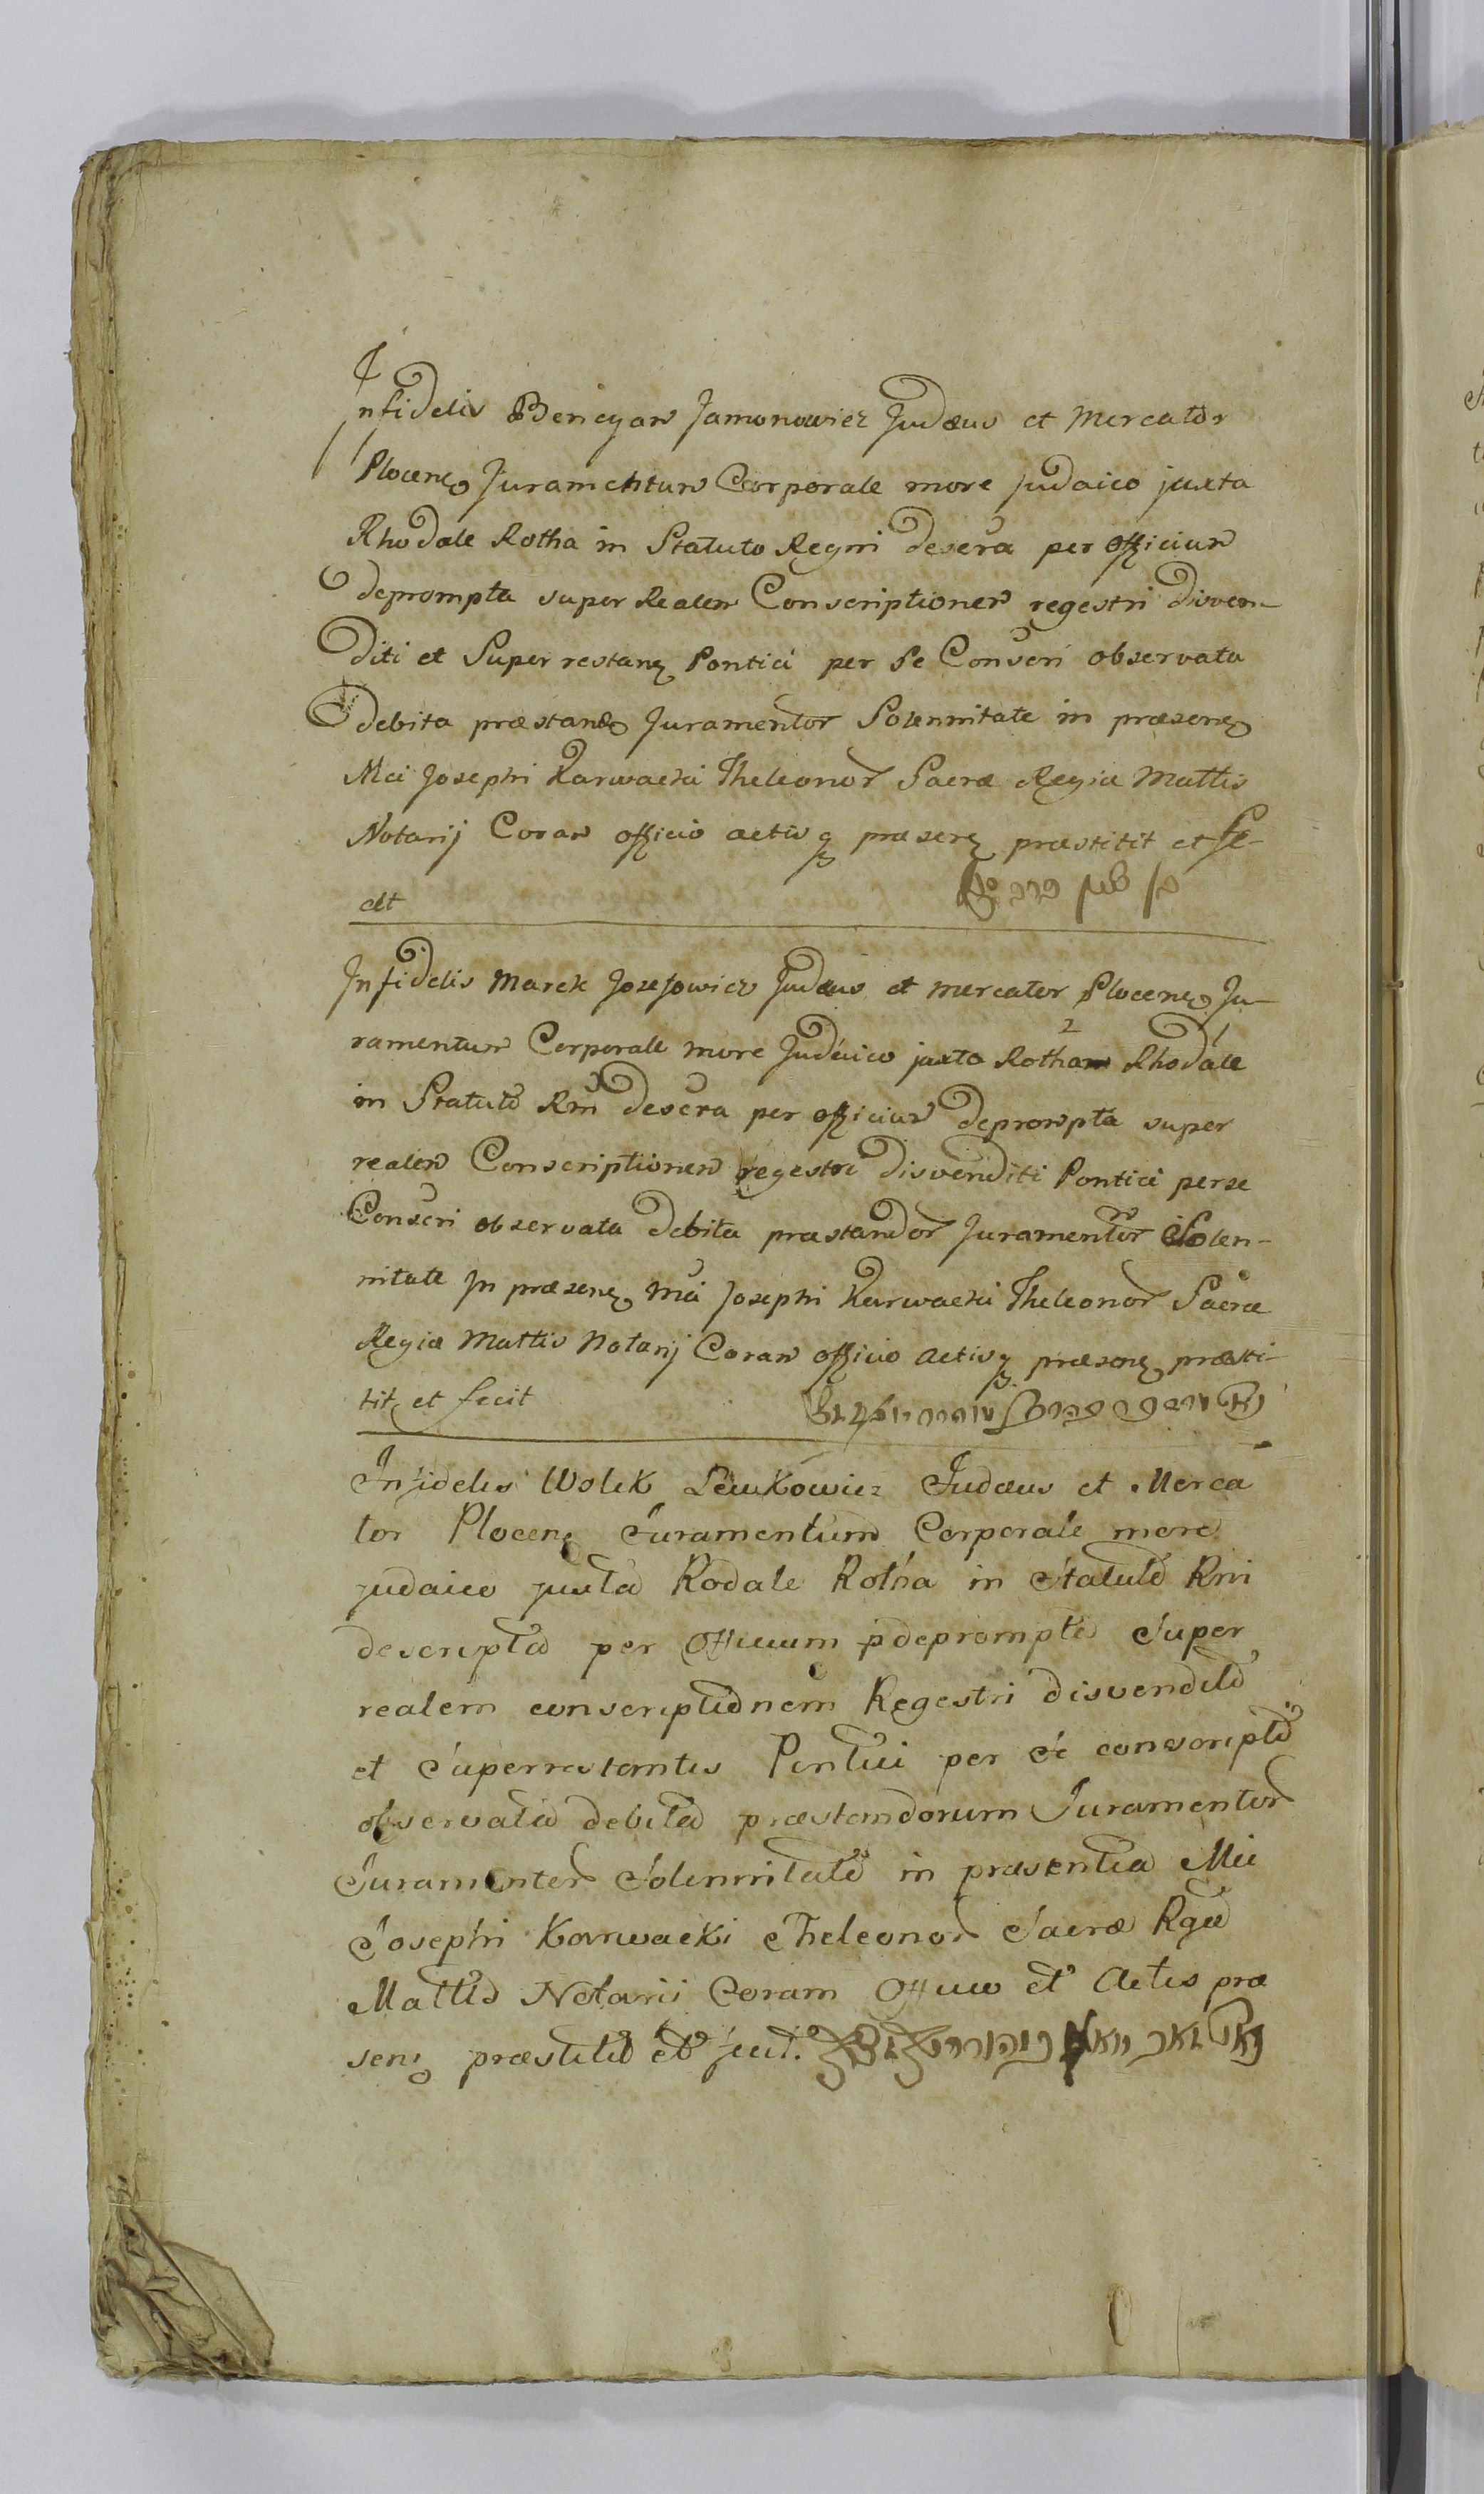 Infidelis Bencyan Jamonowicz Judæus et Mercator
Plocen. Juramentum Corporale more judaico juxta
Rhodale Rotha in Statuto Regni descra per officium
deprompta super Realem Conscriptionem regestri disven-
diti et Super restan. Pontici per Se Conscri observata
debita præstand. Juramentor Solennitate in præsen.
Mci Josephi Karwacki Theleonor Sacræ Regia Mattis
Notarij Coram officio actisq præsen. præstitit et fe-
cit
Infidelis Marek Josefowicz Judæus et mercator Plocen. Ju-
ramentum Corporale more Judaico juxta Rotham Rhodale
in Statuto Rni descra per officium deprompta super
realem Conscriptionem regestri disvenditi Pontici per se
Conscri observata debita præstandor Juramentor Solen-
nitate In præsen. Mci Josephi Karwacki Theleonor Sacræ
Regiæ Mattis Notarij Coram officio actisq præsen. præsti-
tit et fecit
Infidelis Wolek Lewkowicz Judæus et Merca
tor Plocen. Juramentum Corporale more
judaico juxta Rodale Rotha in Statuto Rni
descripta per Officium deprompta Super
realem conscriptionem Regestri disvenditi
et Superrestantis Pontici per Se conscripti
observata debita præstandorum Juramentor
Juramentor Solennitate in præsentia Mci
Josephi Karwacki Theleonor Sacræ Rgiæ
Mattis Notarii Coram Officio et Actis præ
sen. præstitit et fecit.